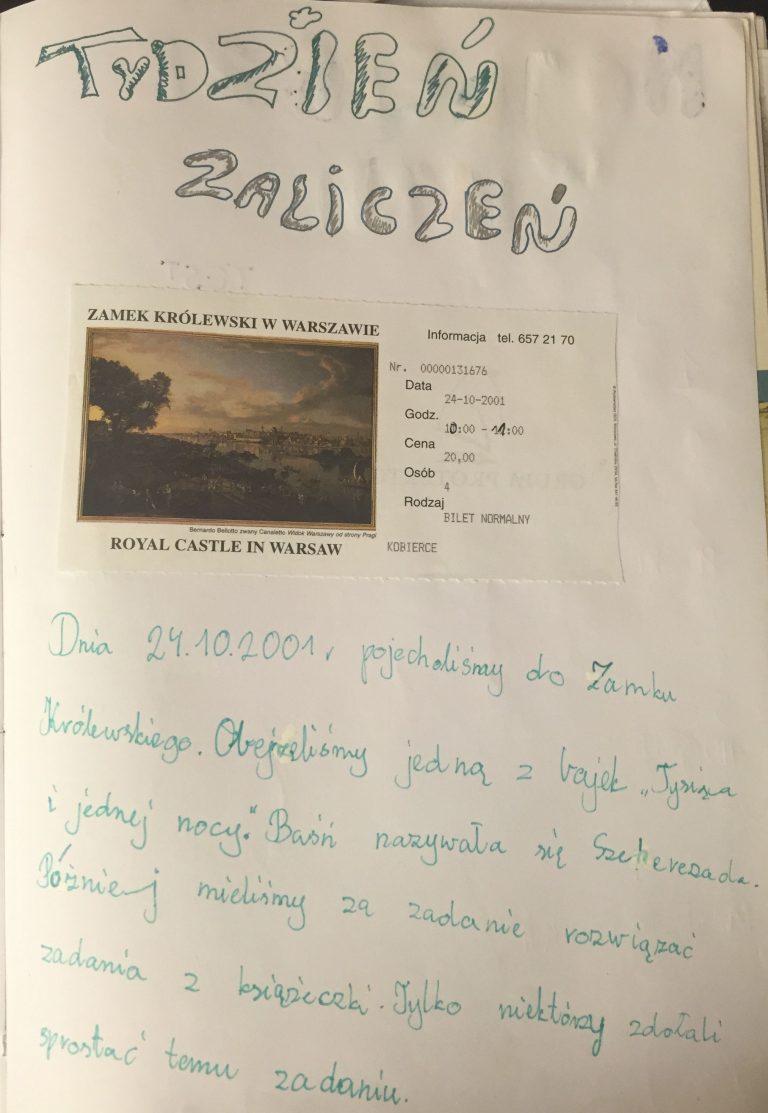 TYDZIEŃ
ZALICZEŃ
ZAMEK KRÓLEWSKI W WARSZAWIE
Bernardo Bellotto zwany Canaletto Widok Warszawy od strony Pragi
ROYAL CASTLE IN WARSAW
Informacja tel. 657 21 70
Nr. 00000131676
Data
24-10-2001
Godz.
10:00 - 11:00
Cena
20,00
Osób
4
Rodzaj
BILET NORMALNY
KOBIERCE
Dnia 24.10.2001r pojechaliśmy do Zamku
Królewskiego. Obejrzeliśmy jedną z bajek „Tysiąca
i jednej nocy." Baśń nazywała się Szeherezada.
Później mieliśmy za zadanie rozwiązać
zadania z książeczki. Tylko niektórzy zdołali
sprostać temu zadaniu.